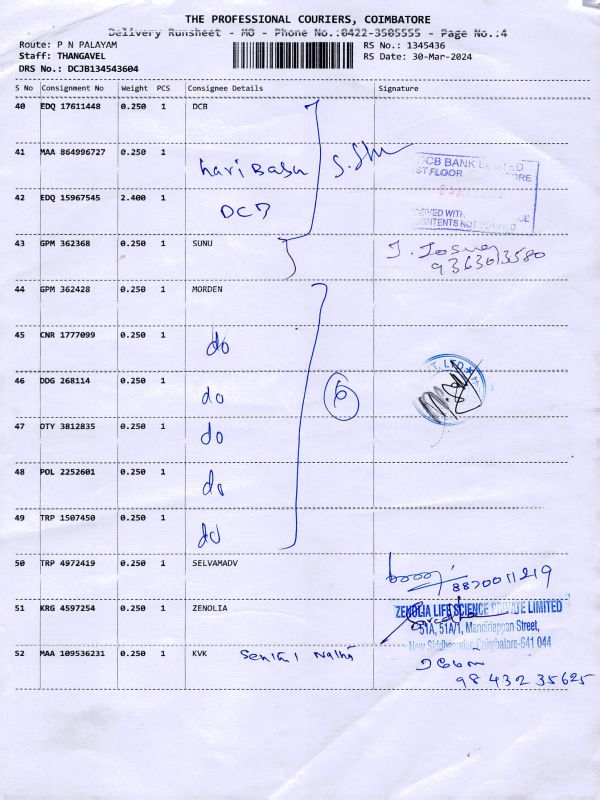 THE PROFESSIONAL COURIERS, COIMBATORE
Delivery Runsheet - MO - Phone No.:0422-3505555 - Page No.:4
Route: P N PALAYAM RS No.: 1345436
Staff: THANGAVEL RS Date: 30-Mar-2024
DRS No.: DCJB134543604
S No Consignment No Weight PCS Consignee Details Signature
40 EDQ 17611448 0.250 1 DCB
41 MAA 864996727 0.250 1 hari Babu
DCB BANK LIMITED
1ST FLOOR
42 EDQ 15967545 2.400 1 DC7
CONTENTS NOT VERIFIED
43 GPM 362368 0.250 1 SUNU
9363013580
44 GPM 362428 0.250 1 MORDEN
45 CNR 1777099 0.250 1 do
46 DDG 268114 0.250 1 do 6
47 DTY 3812835 0.250 1 do
48 POL 2252601 0.250 1 do
49 TRP 1507450 0.250 1 do
50 TRP 4972419 0.250 1 SELVAMADV
8870011219
51 KRG 4597254 0.250 1 ZENOLIA
ZENOLIA LIFE SCIENCE PRIVATE LIMITED
51A, 51A/1, Mandiriappan Street,
Coimbatore-641 044
52 MAA 109536231 0.250 1 KVK
98432 35625